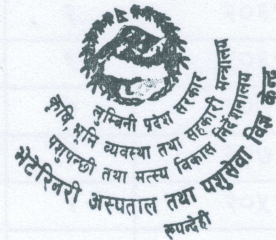 लुम्बिनी प्रदेश सरकार
कृषि, भूमि व्यवस्था तथा सहकारी मन्त्रालय
पशुपन्छी तथा मत्स्य विकास निर्देशनालय
भेटेरिनरी अस्पताल तथा पशुसेवा विज्ञ केन्द्र
रुपन्देही